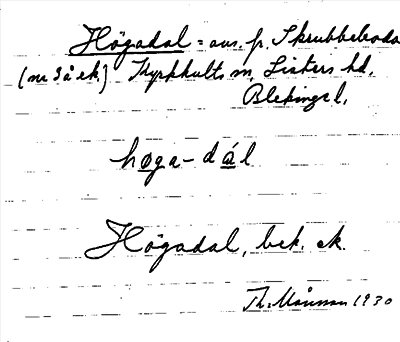 Högadal = avs. fr. Skrubbeboda
(nr 3 å ek) Kyrkhults sn, Listers hd,
Blekinge l.
høga-dál
Högadal, bek. ek.
Th. Månsson 1930